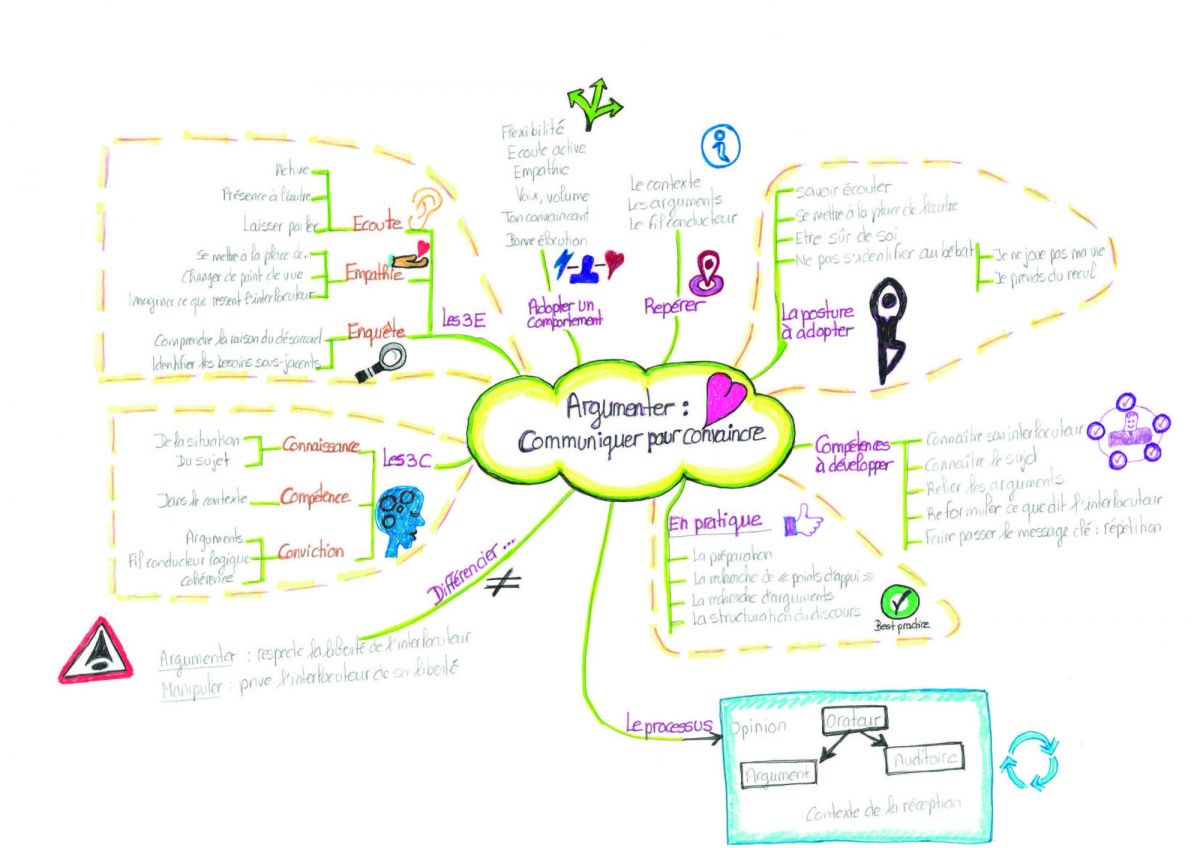 Argumenter :
Communiquer pour convaincre
Les 3E
Ecoute
Active
Présence à l'autre
Laisser parler
Empathie
Se mettre à la place de..
Changer de point de vue
Imaginer ce que ressent l'interlocuteur
Enquête
Comprendre la raison du désaccord
Identifier les besoins sous-jacents
Adopter un
comportement
Flexibilité
Ecoute active
Empathie
Voix, volume
Ton convaincant
Bonne élocution
Repérer
Le contexte
Les arguments
Le fil conducteur
La posture
à adopter
Savoir écouter
Se mettre à la place de l'autre
Etre sûr de soi
Ne pas s'identifier au débat
Je ne joue pas ma vie
Je prends du recul
Compétences
à développer
Connaître son interlocuteur
Connaître le sujet
Relier les arguments
Reformuler ce que dit l'interlocuteur
Faire passer le message clé : répétition
En pratique
La préparation
La recherche de « points d'appui »
La recherche d'arguments
La structuration du discours
Best practice
Le processus
Opinion
Orateur
Argument
Auditoire
Contexte de la réception
Différencier ...
≠
Argumenter : respecte la liberté de l'interlocuteur
Manipuler : prive l'interlocuteur de sa liberté
Les 3C
Connaissance
De la situation
Du sujet
Compétence
Dans le contexte
Conviction
Arguments
Fil conducteur logique
cohérence